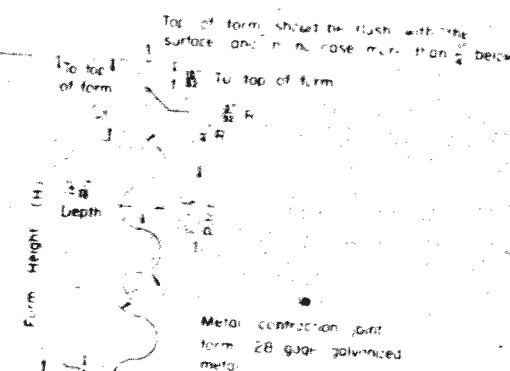 Top of form should be flush with the
surface and in no case more than below
To top
of form
To top of form
R
R
Depth
Form Height (H)
Metal contraction joint
form 28 gage galvanized
metal